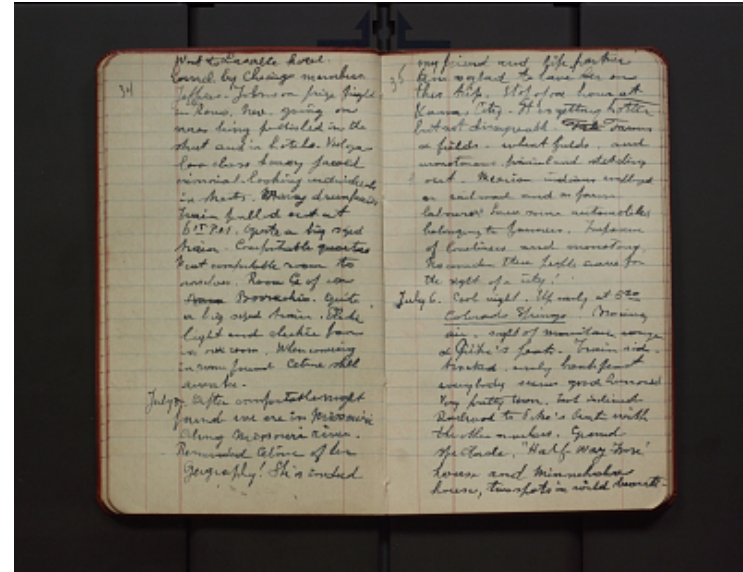 34
Went to Lasalle hotel.
found by Chicago members.
Jeffries-Johnson prize fight
in Reno, Nev. going on
news being published in the
street and in hotels. Vulgar
low class heavy faced
criminal-looking individuals
in streets. Many drunkards.
Train pulled out at
6 P.M. Quite a big sized
train. Comfortable quarters
Next comfortable room to
ourselves. Room G of car
Quite
a big sized train. Electric
light and electric fan
in our room. When coming
in room found Celine still
awake.
July 5. After comfortable night
found we are in Missouri
along Missouri river.
Reminded Celine of her
Geography! She is indeed
35
my friend and life partner
Am so glad to have her on
this trip. Stop of one hour at
Kansas City. It is getting hotter
but not disagreeable. Farms
& fields - wheat fields, and
monotonous prairieland stretching
out. Mexican indians employed
on railroad and as farm
labourers. Saw some automobiles
belonging to farmers. Impression
of loneliness and monotony.
No wonder these people crave for
the sight of a city!
July 6. Cool night. Up early at 5
Colorado Springs. Bracing
air, sight of mountain range
& Pike's peak. Train side-
tracked. early breakfast
everybody seems good humored
Very pretty town. Took inclined
Railroad to Pike's Peak with
the other members. Grand
spectacle. "Half Way House"
house and Minnehaha
house, two spots in wild